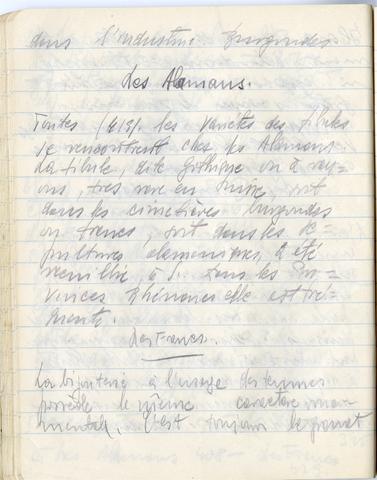 dans l'industrie Burgondes
Les Alamans.
Toutes (413). les variétés des fibules
se rencontrent chez les Alamans
La fibule, dite gothique ou à ray-
ons, très rare en Suisse, soit
dans les cimetières burgondes
ou francs, soit dans les sé-
pultures alamaniques, a été
Dans les Pro-
vinces Rhénanes elle est fré-
quente.
Les Francs.
La bijouterie à l'usage des femmes
possède le même caractère
mental, c'est toujours le grenat